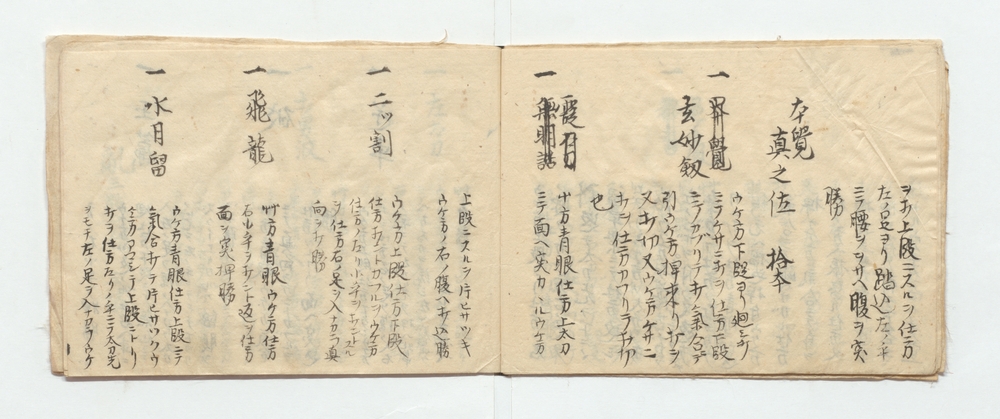 ヲ打上段ニスルシ仕方
左ノ足ヨリ踏込左ノ手
ニテ腰ヲサヘ腹ヲ突
勝
本覺
真之位 拾本
一 玄妙釼
ウケ方下段ヨリ廻シ打
ニテケサニ打ヲ仕方下段
ニテカブリテ打ノ氣合デ
引ウケ方押来リ打ヲ
又打切又ウケ方ケサニ
打ヲ仕方カフリテ打切
也
一
サ方青眼仕方上太刀
ニテ面ヘ突カヽルウケ方
上段ニスルシ片ヒサツキ
ウケ方ノ右ノ腹ヘ打込勝
一 二ツ割
ウケ方上段仕方下段
仕方打ニトカフルヲウケ方
仕方ノ左リ小手ヲ打ニトスル
ヲ仕方右ノ足ヲ入ナカラ真
向ヲ打勝
一 飛龍
青眼ウケ方仕方
右小手ヲ打ント返シ仕方
面ヲ突押勝
一 水月留
ウケ方青眼仕方上段ニテ
氣合打テ片ヒサツクウ
上段ニトリ
打ヲ仕方左リノ手ニテ太刀先
ヲモチ左ノ足ヲ入ナカラウケ